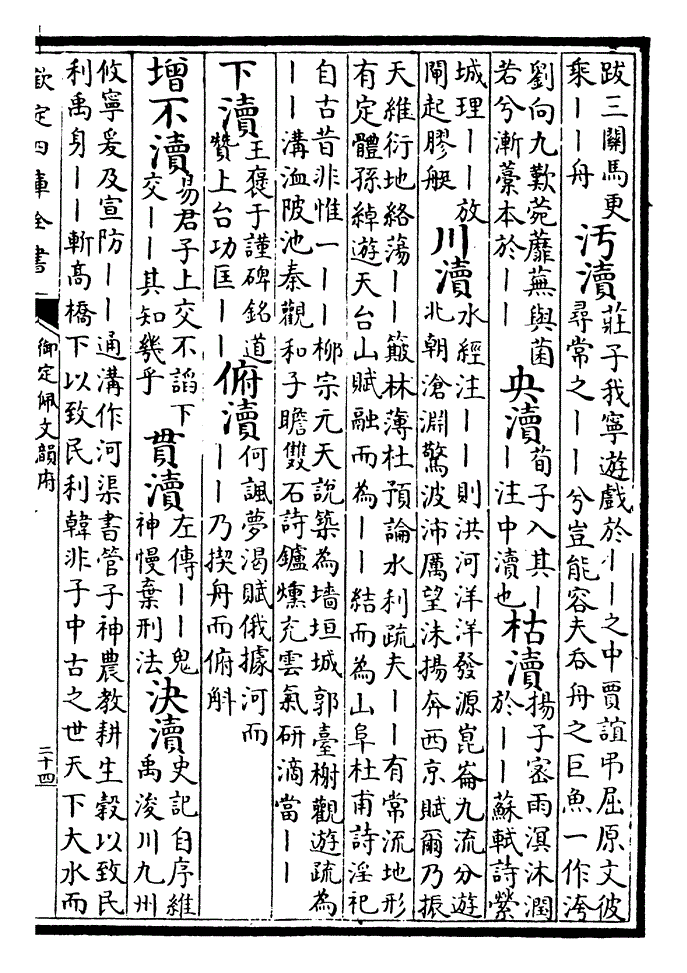 跋三關馬更
乘丨丨舟
汚瀆
莊子我寧遊戲於丨丨之中賈誼弔屈原文彼
尋常之丨丨兮豈能容夫吞舟之巨魚一作洿
劉向九歎菀蘼蕪與菌
若兮漸藁本於丨丨
央瀆
荀子入其丨
丨注中瀆也
枯瀆
揚子宻雨溟沐潤
於丨丨蘇軾詩縈
城理丨丨放
閘起膠艇
川瀆
水經注丨丨則洪河洋洋發源崑崙九流分遊
北朝滄淵驚波沛厲望沫揚奔西京賦爾乃振
天維衍地絡蕩丨丨簸林薄杜預論水利疏夫丨丨有常流地形
有定體孫綽遊天台山賦融而為丨丨結而為山阜杜甫詩淫祀
自古昔非惟一丨丨柳宗元天說築為墻垣城郭臺榭觀遊疏為
丨丨溝洫陂池秦觀和子瞻雙石詩鑪燻充雲氣研滴當丨丨
下瀆
王褒于謹碑銘道
贊上台功匡丨丨
俯瀆
何諷夢渴賦俄據河而
丨丨乃揳舟而俯斛
增不瀆
易君子上交不諂下
交丨丨其知幾乎
貫瀆
左傳丨丨鬼
神慢棄刑法
決瀆
史記自序維
禹浚川九州
攸寧爰及宣防丨丨通溝作河渠書管子神農教耕生穀以致民
利禹身丨丨斬高橋下以致民利韓非子中古之世天下大水而
欽定四庫全書
御定佩文韻府
二十四